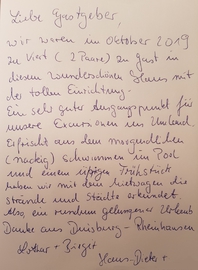 Liebe Gastgeber,
wir waren im Oktober 2019
zu viert (2 Paare) zu Gast in
diesem wunderschönen Haus mit
der tollen Einrichtung.
Ein sehr guter Ausgangspunkt für
unsere Excursionen ins Umland.
Erfrischt aus dem morgendlichen
(nackig) schwimmen im Pool
und einem üppigen Frühstück
haben wir mit dem Mietwagen die
Strände und Städte erkundet.
Also, ein rundum gelungener Urlaub
Danke aus Duisburg-Rheinhausen
Lothar + Birgit
Hans-Dieter +